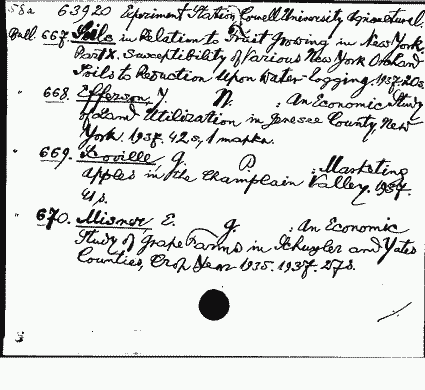 58a 63920 Experiment Station, Cornell University Agricultural.
Bull. 667. Soils in Relation to Fruit Growing in New York.
Part X. Susceptibility of Various New York Orchard
Soils to Reduction Upon Water-logging. 1937. 20s.
" 668. Efferson, J. N. : An Economic Study
of Land Utilization in Genesee County, New
York. 1937. 42s, 1 mapka.
" 669. Scoville, G. P. : Marketing
apples in the Champlain Valley. 1937.
41s.
" 670. Misner, E. G. : An Economic
Study of Grape Farms in Schuyler and Yates
Counties, Crop Year 1935. 1937. 27s.